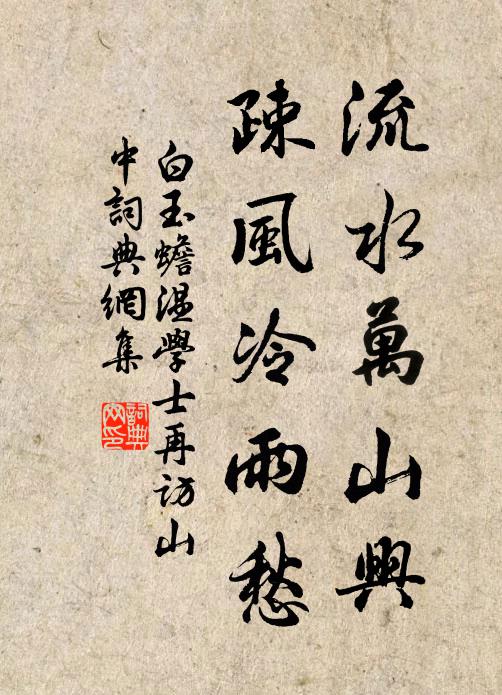 流水萬山興
疎風冷雨愁
白玉蟾溫學士再訪山
中詞典網集
詞典
网印